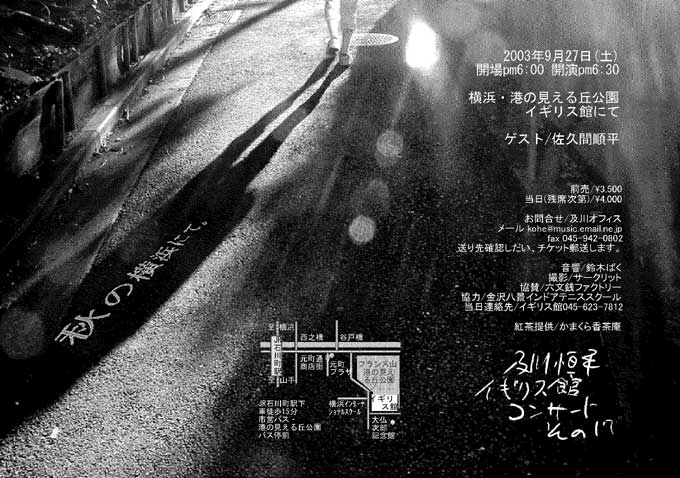 2003年9月27日(土)
開場pm6:00 開演pm6:30
横浜・港の見える丘公園
イギリス館にて
ゲスト/佐久間順平
前売/¥3,500
当日(残席次第)/¥4,000
お問合せ/及川オフィス
メール kohe@music.email.ne.jp
fax 045-942-0802
送り先確認しだい、チケット郵送します。
音響/鈴木ばく
撮影/サークリット
協賛/六文銭ファクトリー
協力/金沢八景インドアテニススクール
当日連絡先/イギリス館045-623-7812
紅茶提供/かまくら香茶庵
秋の横浜にて。
至横浜
西之橋
谷戸橋
JR石川町駅
元町通
商店街
元町
プラザ
フランス山
港の見え
る丘公園
至山手
イギリ
ス館
横浜インターナ
ショナルスクール
大仏
次郎
記念館
JR石川町駅下
車徒歩15分
市営バス・
港の見える丘公園
バス停前
及川恒平
イギリス館
コンサート
その17